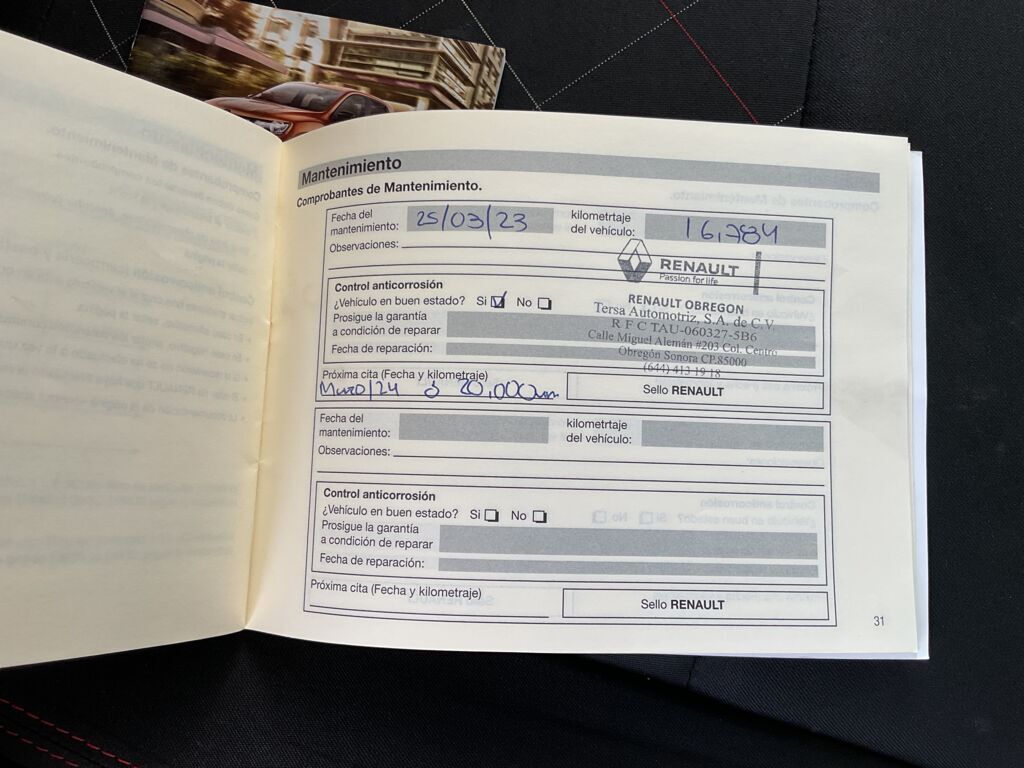 Mantenimiento
Comprobantes de Mantenimiento.
Fecha del mantenimiento: 25/03/23 kilometrtaje del vehículo: 16,784
Observaciones:
RENAULT
Passion for life
Control anticorrosión
¿Vehículo en buen estado? Si No
RENAULT OBREGON
Tersa Automotriz, S.A. de C.V.
Prosigue la garantía a condición de reparar
R F C TAU-060327-5B6
Calle Miguel Alemán #203 Col. Centro
Fecha de reparación:
Obregón Sonora CP.85000
(644) 413 19 18
Próxima cita (Fecha y kilometraje)
Marzo/24 ó 20,000km
Sello RENAULT
Fecha del mantenimiento: kilometrtaje del vehículo:
Observaciones:
Control anticorrosión
¿Vehículo en buen estado? Si No
Prosigue la garantía a condición de reparar
Fecha de reparación:
Próxima cita (Fecha y kilometraje)
Sello RENAULT
31